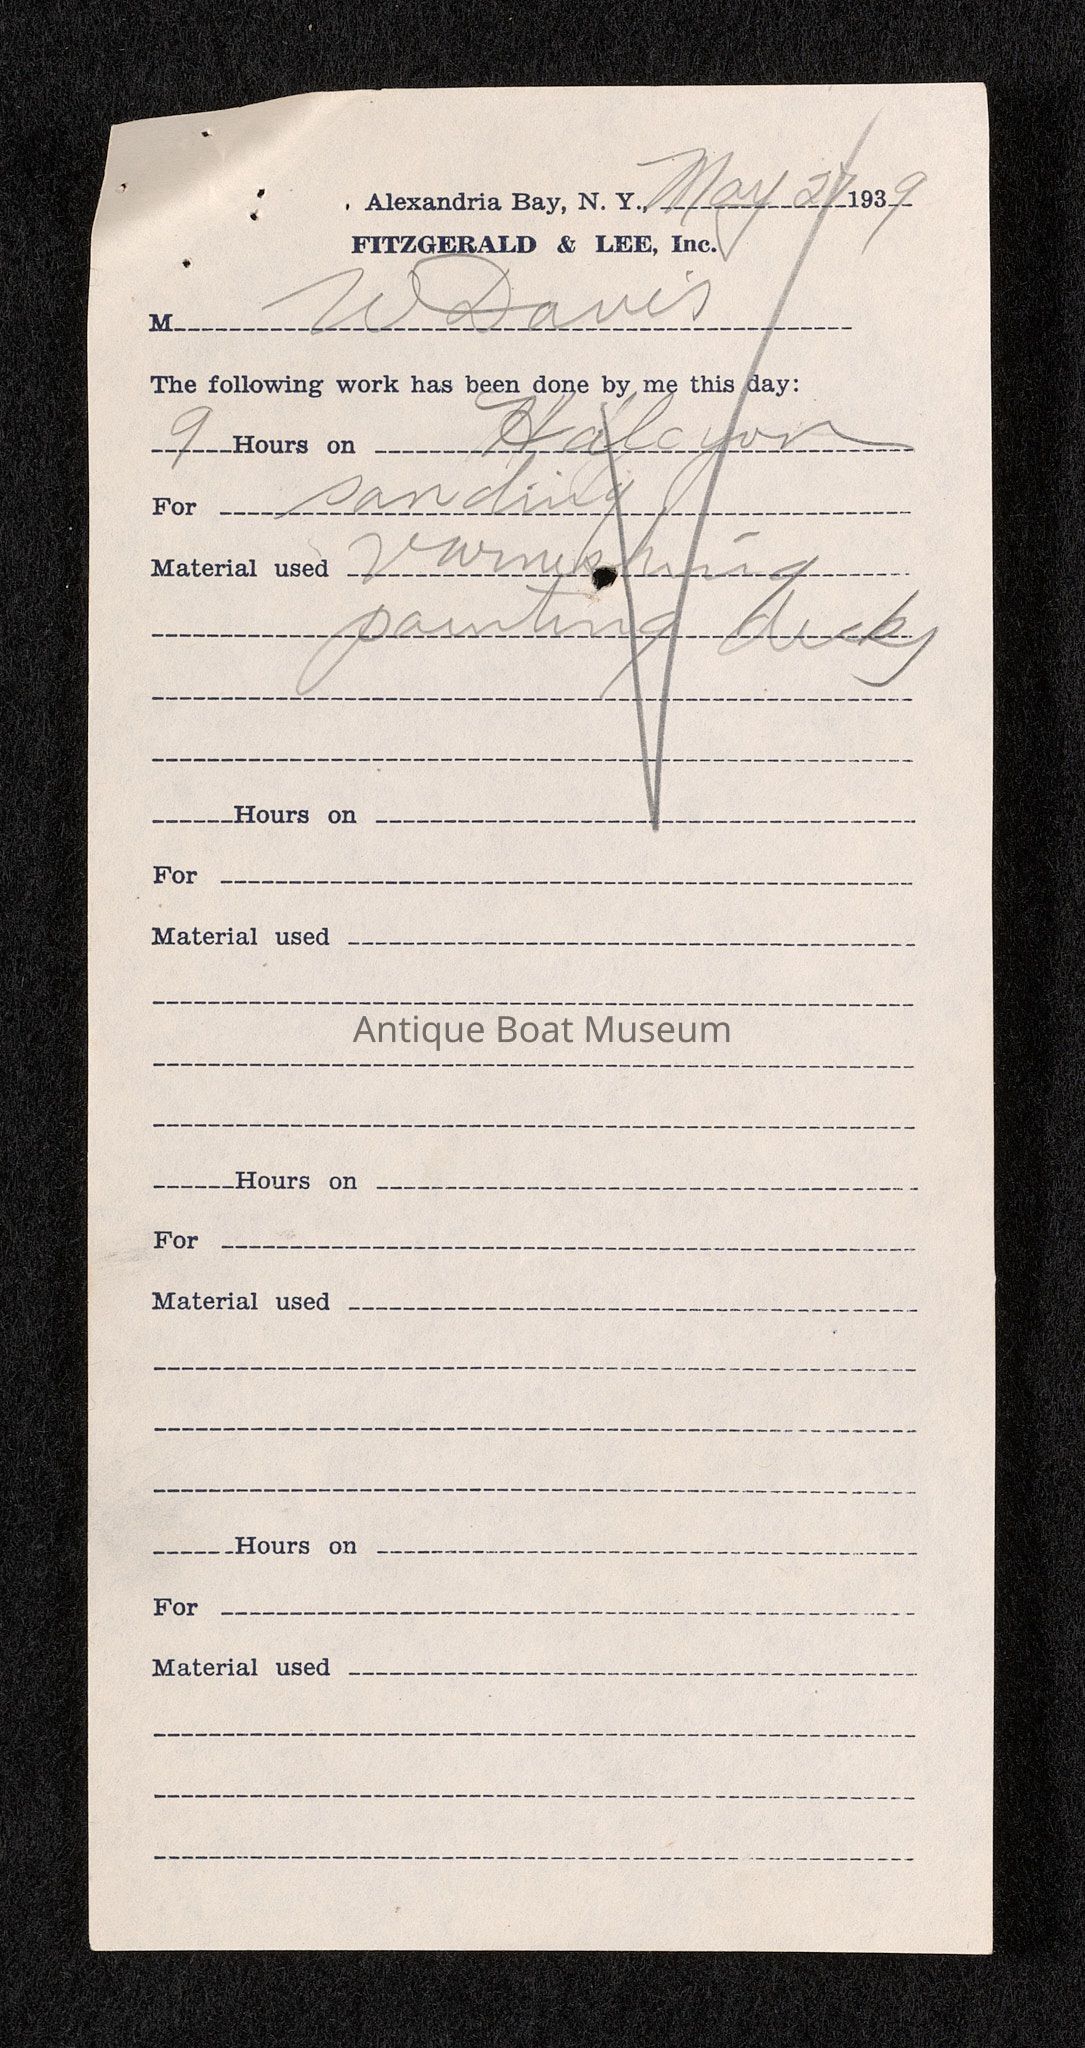 Alexandria Bay, N. Y., May 27 1939
FITZGERALD & LEE, Inc.
M W Davis
The following work has been done by me this day:
9 Hours on Halcyon
For sanding
Material used varnishing
painting decks
Hours on
For
Material used
Antique Boat Museum
Hours on
For
Material used
Hours on
For
Material used